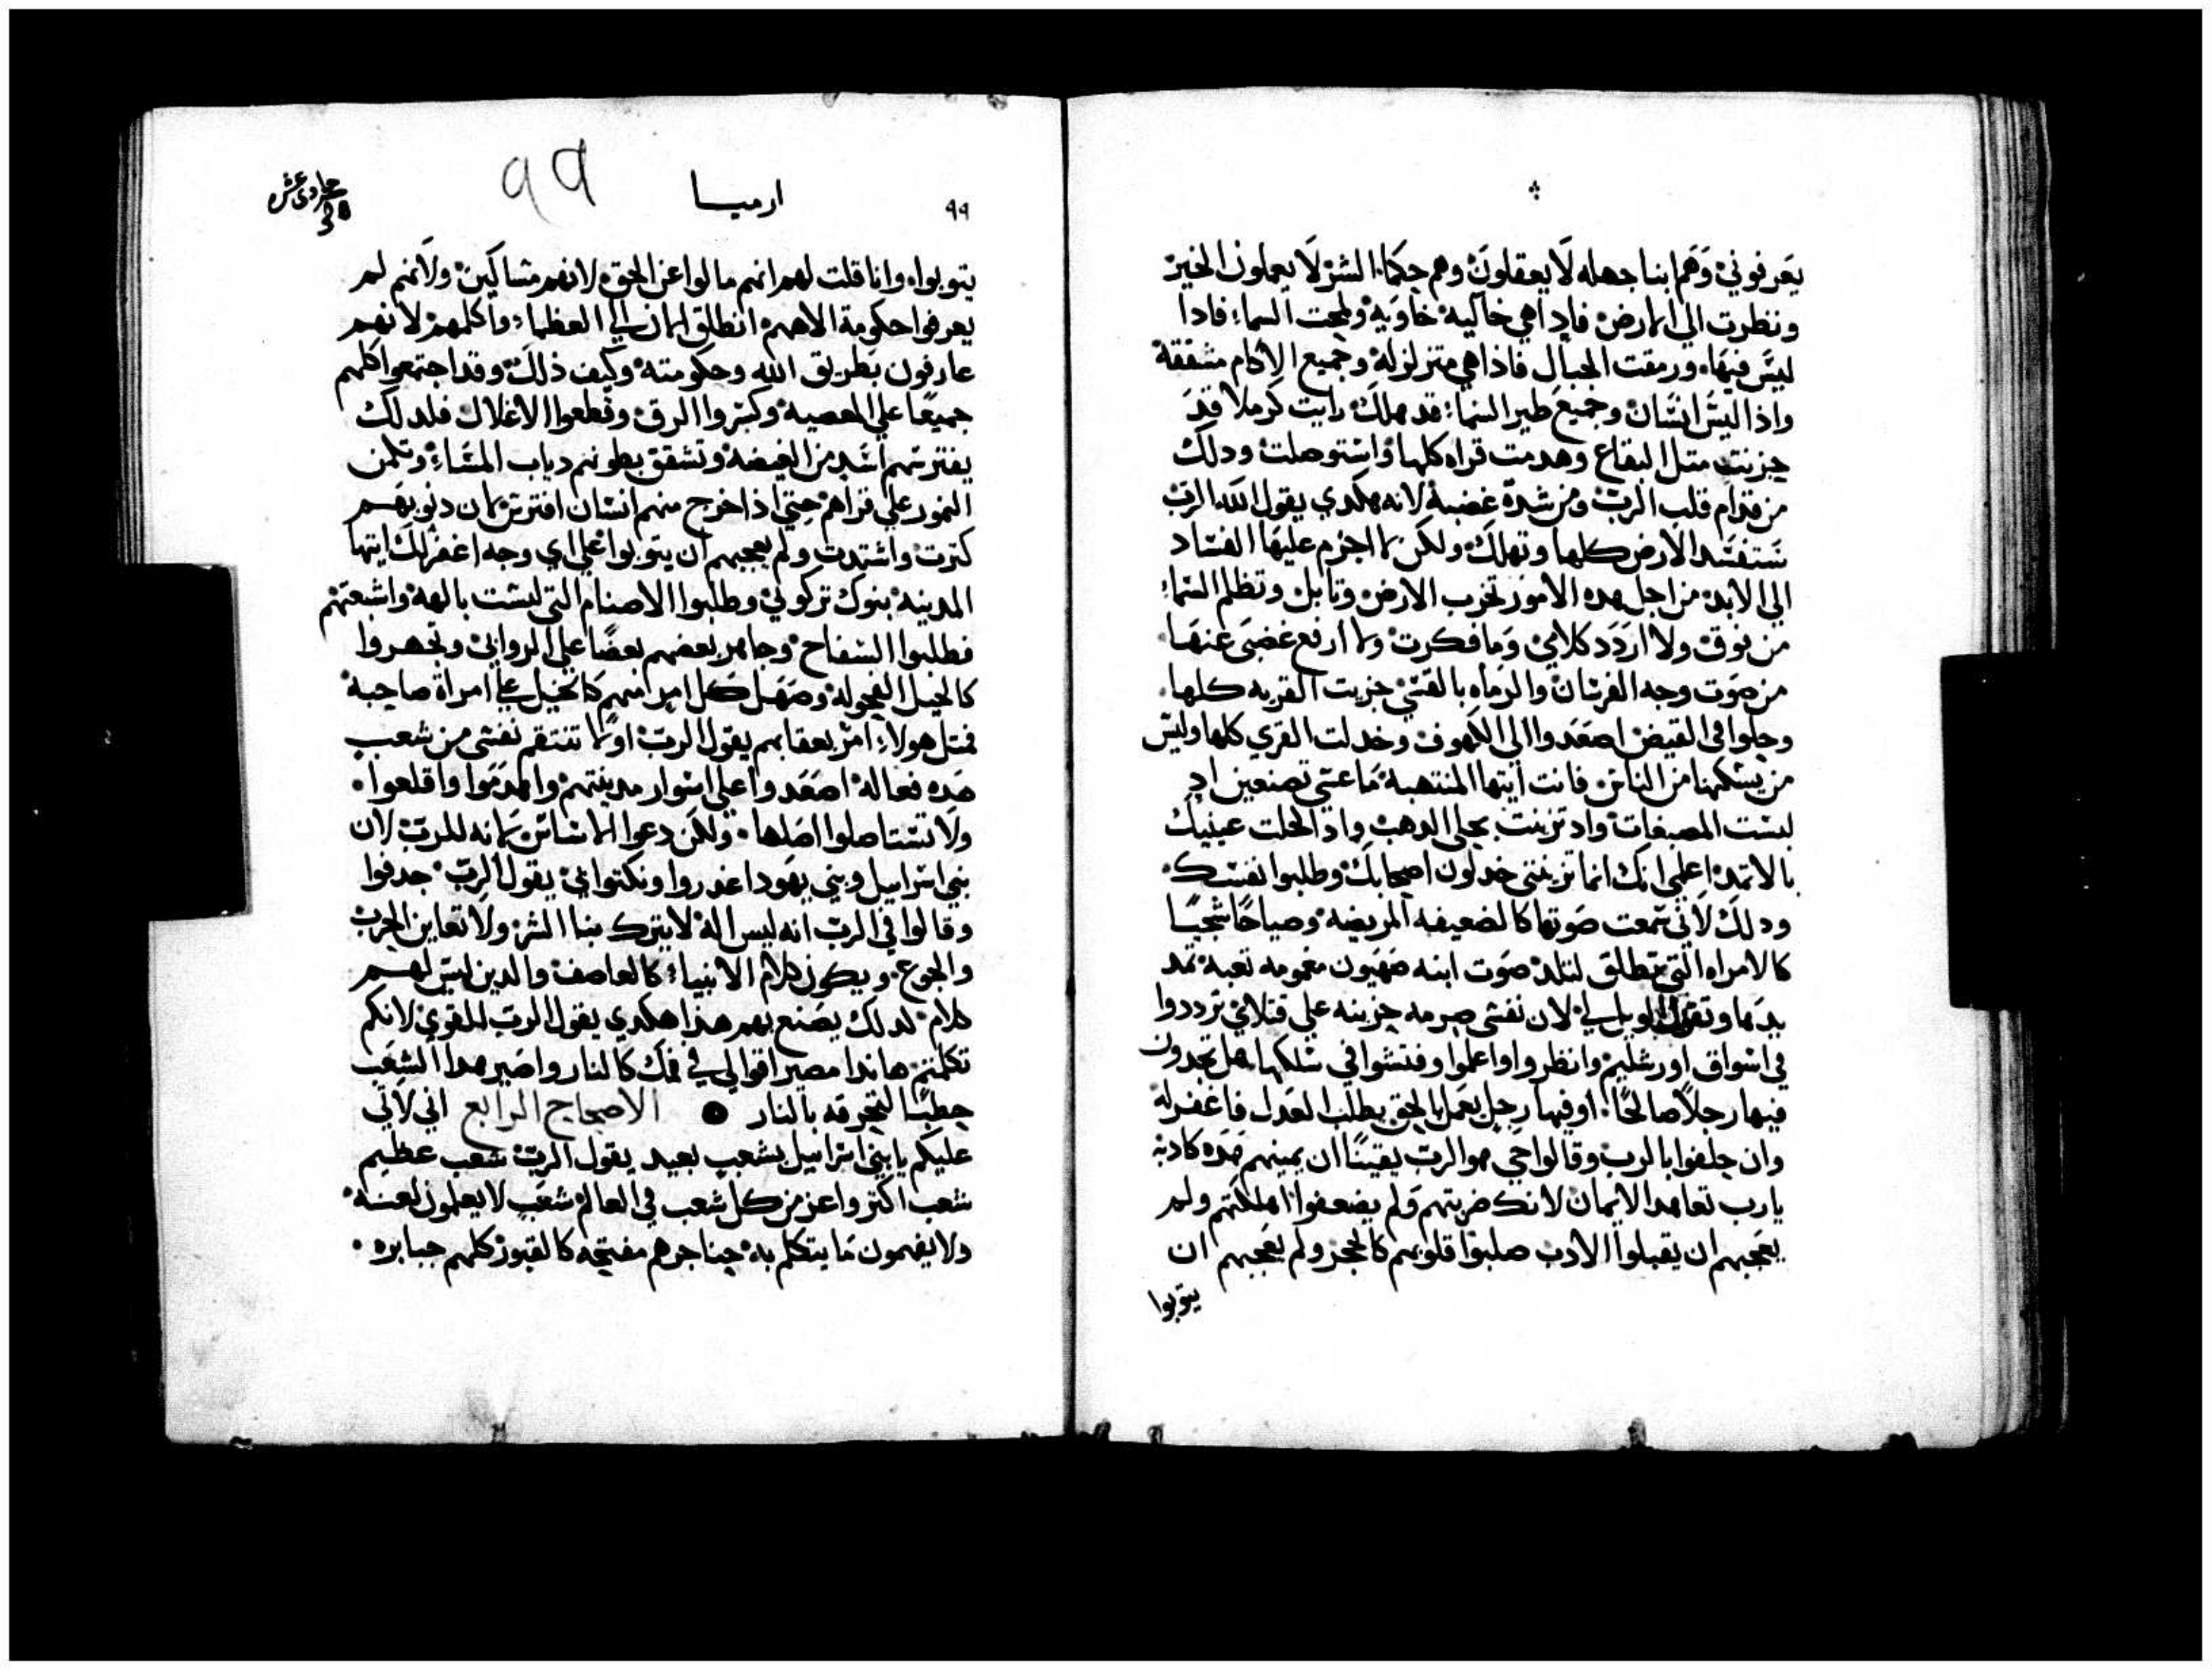 يعرفوني وهم ابنا جهله لا يعقلون وهم حكماء الشر لا يعملون الخير
ونظرت الي الارض فاذا هي خاليه خاويه ولمحت السماء فاذا
ليس فيها ورمقت الجبال فاذا هي متزلزله وجميع الاكام متفقة
واذا ليس انسان وجميع طير السماء قد هلك رايت كرملا قد
حزنت متل البقاع وهدمت قراه كلها واستوصلت ودلك
من قدام قلب الرب ومن شدة غضبه لانه هكدي يقول الله الرب
ستفسد الارض كلها وتهلك ولكن لا اجزم عليها الفساد
الي الابد من اجل هده الامور تخرب الارض وتابل وتظلم السماء
من فوق ولا اردد كلامي وما فكرت ولا ارفع غضبي عنها
من صوت وجه الفرسان والرماه بالقسي خربت القريه كلها
وحلوا في القيض اصعدوا الي الكهوف وخدلت القري كلها وليس
من يسكنها من الناس فانت ايتها المنتهبه ما عسي تصنعين اد
لبست المصبغات واد تزينت بحلي الدهب واد الحلت عينيك
بالاتمد اعلمي انك انما تزينتي خدلون اصحابك وطلبوا نفسك
ودلك لاني سمعت صوتها كالضعيفه المريضه وصياحا شجيا
كالامراه التي تطلق لتلد صوت ابنه صهيون مغمومه تعبه تمد
يدها وتقول الويل لي لان نفسي صرمه حزينه علي قتلاي ترددوا
في اسواق اورشليم وانظروا واعلموا وفتشوا في سلكها هل تجدون
فيها رجلا صالحا اوفيها رجل يعمل بالحق يطلب العدل فاغفر له
وان حلفوا بالرب وقالوا حي هو الرب يقينا ان يمينهم هده كادبه
يارب تعاهد الايمان لانك ضربتهم ولم يضعفوا اهلكتهم ولم
يعجبهم ان يقبلوا الادب صلبوا قلوبهم كالحجر ولم يعجبهم ان
يتوبوا
٩٩
ارميا
99
يتوبوا وانا قلت لهم انهم مالوا عن الحق لانهم مساكين ولانهم لم
يعرفوا حكومة الاههم انطلق الان الي العظماء واكلمهم لانهم
عارفون بطريق الله وحكومته وكيف ذلك وقد اجتمعوا كلهم
جميعا علي المعصيه وكسروا الرق وقطعوا الاغلال فلدلك
يفترسهم اسد من الغيضه وتشقق بطونهم دياب المساء وتكمن
النمور علي قراهم حتي اذا خرج منهم انسان افترس لان دنوبهم
كترت واشتدت ولم يعجبهم ان يتوبوا علي اي وجه اغفر لك ايتها
المدينه بنوك تركوني وطلبوا الاصنام التي ليست بالهه واشبعتهم
فطلبوا السفاح وجاهر بعضهم بعضا علي الرواني وتجهروا
كالخيل الفحوله وصهل كل امر منهم كالخيل علي امراة صاحبه
فمتل هولاء امر بعقابهم يقول الرب اولا تنتقم نفسي من شعب
هده فعاله اصعدوا علي اسوار مدينتهم واهدموا واقلعوا
ولا تستاصلوا اصلها ولكن دعوا الاساس لانه للرب لان
بني اسراييل وبني يهودا غدروا ونكتوا بي يقول الرب جدفوا
وقالوا في الرب انه ليس اله لا يترك بنا الشر ولا نعاين الحرب
والجوع ويكون كلام الانبياء كالعاصف والدين ليس لهم
كلام لدلك يصنع بهم هذا هكدي يقول الرب القوي لانكم
تكلمتم هاندا مصير اقوالي في فمك كالنار واصير هدا الشعب
حطبا لتحرقه بالنار الاصحاح الرابع اني لاتي
عليكم يا بني اسراييل بشعب بعيد يقول الرب شعب عظيم
شعب اكتر واعز من كل شعب في العالم شعب لا يعلمون لغته
ولا يفهمون ما يتكلم به حناجرهم مفتحه كالقبور كلهم جبابره